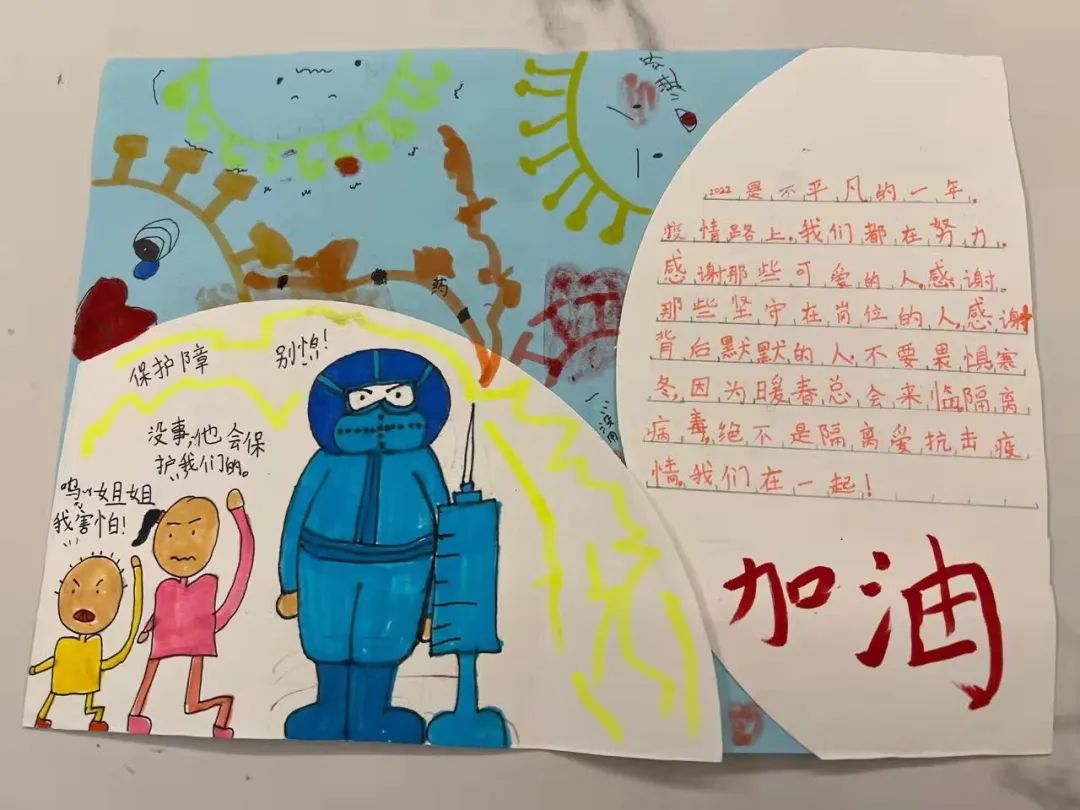 保护障
别!
没事,他会保
护我们的。
呜~姐姐
我害怕!
药
没用
2022是不平凡的一年。
疫情路上,我们都在努力。
感谢那些可爱的人,感谢。
那些坚守在岗位的人,感谢
背后默默的人,不要畏惧寒
冬,因为暖春总会来临,隔离
病毒,绝不是隔离爱,抗击疫
情,我们在一起!
加油